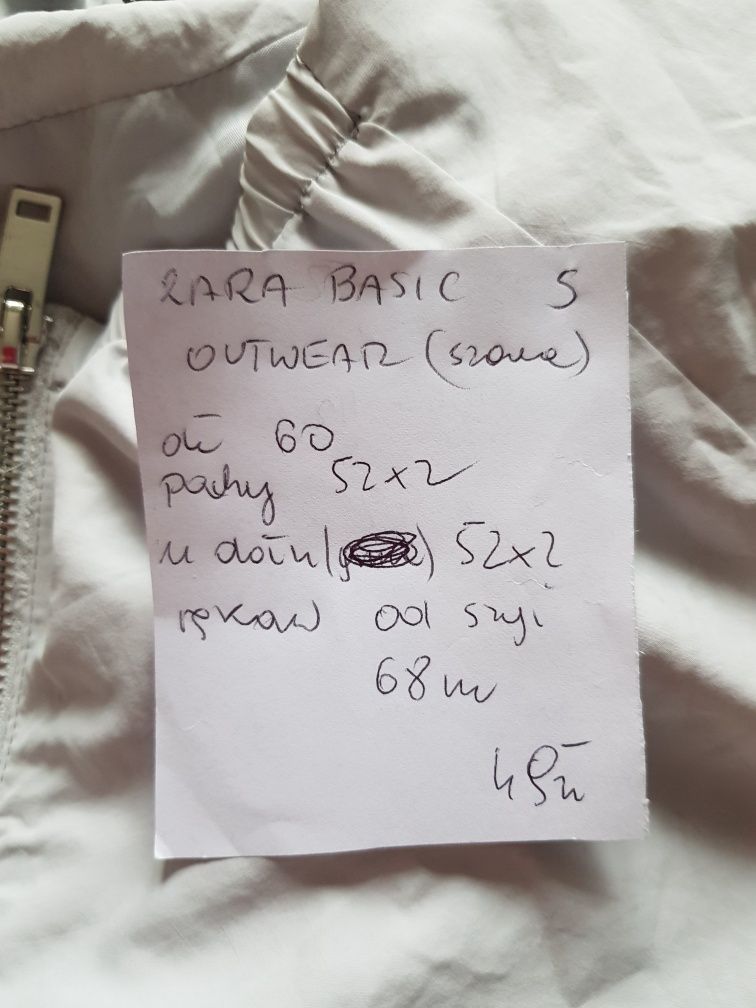 ZARA BASIC S
OUTWEAR (szara)
dł 60
pachy 52x2
u dołu 52x2
rękaw od szyi
68